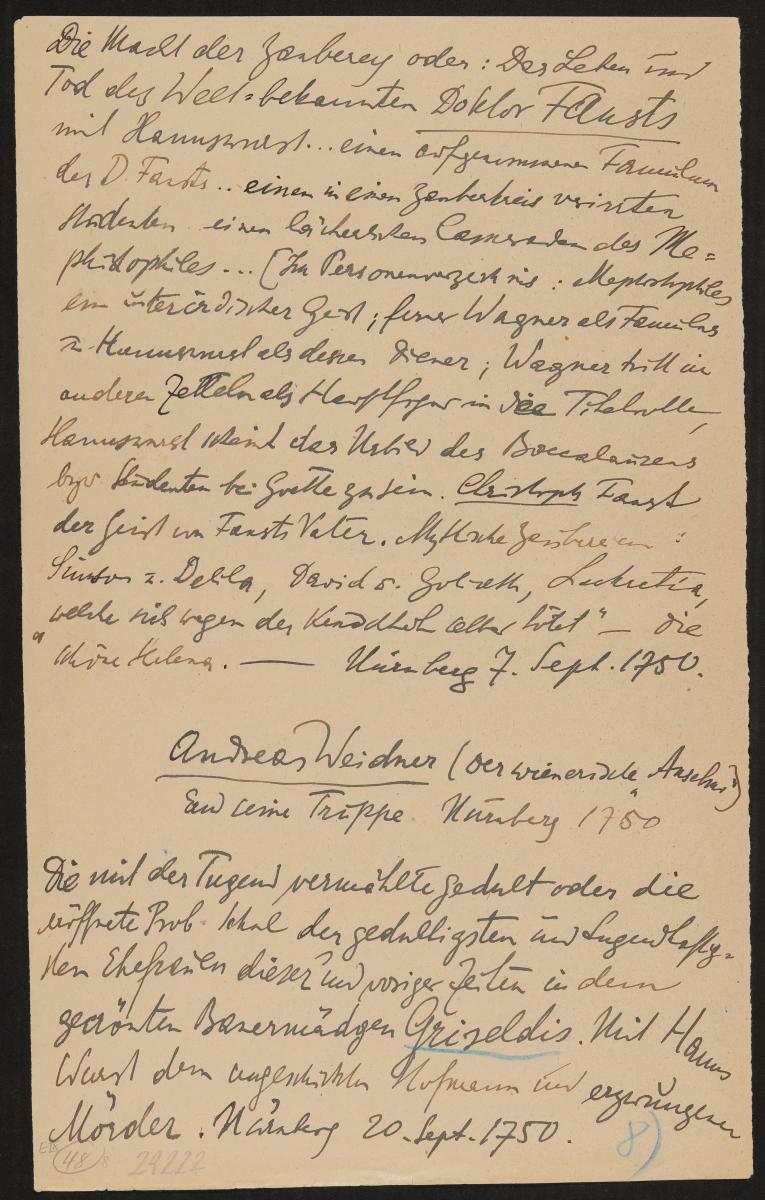 Die Macht der Zauberey oder: Das Leben und
Tod des Welt=bekannten Doktor Fausts
mit Hannswurst... einen aufgenommenen Famulum
des D. Fausts.. einen in einen Zauberkreis verirrten
Studenten einen lächerlichen Cameraden des Me=
phistophiles... (Im Personenverzeichnis: Mephistophiles
ein unterirdischer Geist; ferner Wagner als Famulus
u. Hannswurst als dessen Diener; Wagner tritt in
anderen Zetteln als Hauptfigur in die Titelrolle,
Hannswurst scheint das Urbild des Baccalaureus
bzw Studenten bei Goethe zu sein. Christoph Faust
der Geist von Fausts Vater. Mythische Zaubereien:
Simson u. Delila, David u. Goliath, Lukretia,
welche sich wegen der Keuschheit selber tötet" — die
"schöne Helena. — Nürnberg 7. Sept. 1750.
Andreas Weidner (der wienerische Anselmi")
und seine Truppe Nürnberg 1750
Die mit der Tugend vermählte Gedult oder die
eröffnete Prob-Schul der gedultigsten und tugendhafti=
sten Ehefrauen dieser und voriger Zeiten in dem
gecrönten Bauermädgen Griseldis. Mit Hanns
Wurst dem ungeschickten Hofmann und erzwungenen
Mörder. Nürnberg 20. Sept. 1750.
8)
48
29222